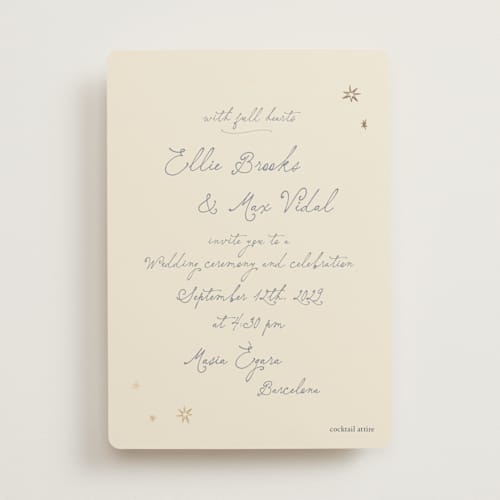 with full hearts
Ellie Brooks
& Max Vidal
invite you to a
Wedding ceremony and celebration
September 12th, 2029
at 4:30 pm
Masia Ègara
Barcelona
cocktail attire